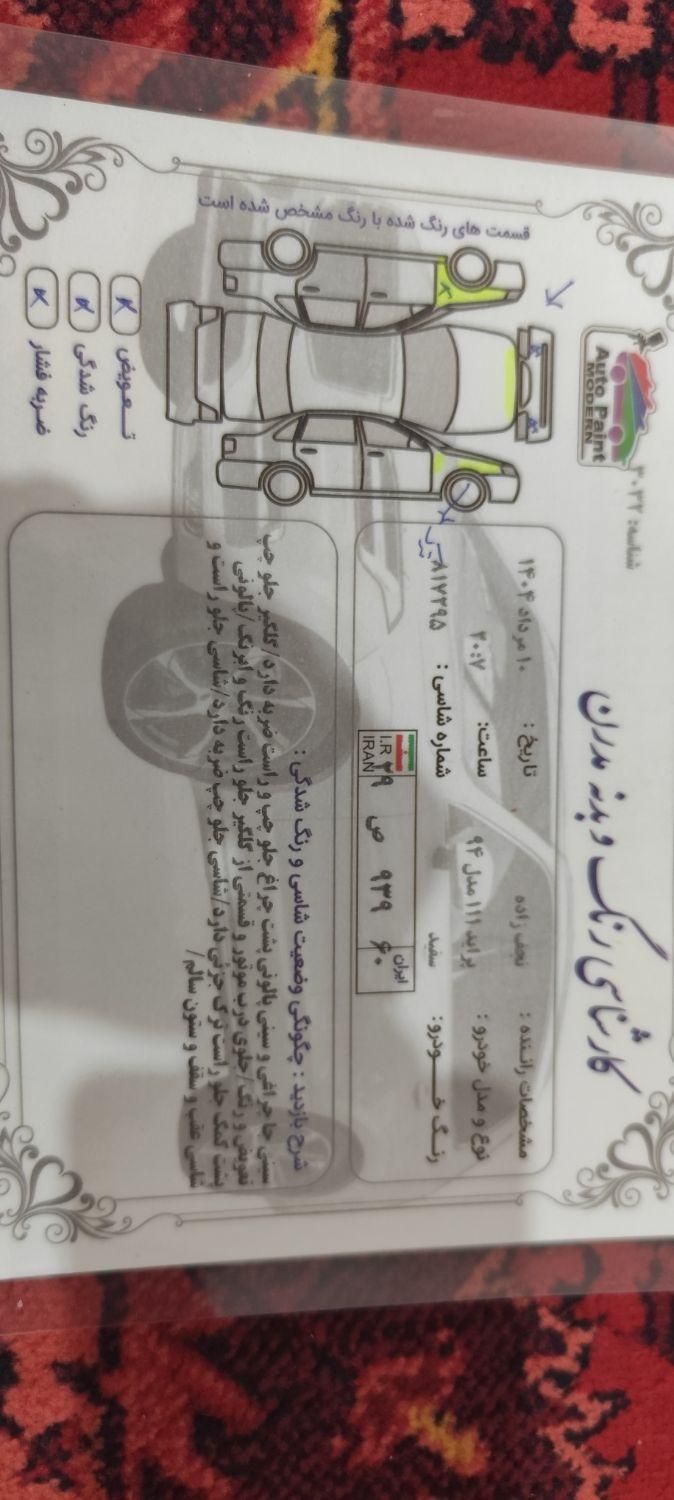 کارشناسی رنگ و بدنه مدرن
شناسه: ۳۰۲۲
Auto Paint
MODERN
مشخصات راننده : نجف زاده
تاریخ : ۱۰ مرداد ۱۴۰۴
نوع و مدل خودرو : پراید ۱۱۱ مدل ۹۴
ساعت: ۲۰:۷
رنگ خودرو: سفید
شماره شاسی : ۸۱۷۲۹۵
I.R
IRAN
۲۹ ص ۹۳۹
ایران
۶۰
شرح بازدید : چگونگی وضعیت شاسی و رنگ شدگی :
سینی جا چراغی و سینی پالونی پشت چراغ جلو چپ و راست ضربه دارد/گلگیر جلو چپ
تعویض و رنگ/جلوی درب موتور و قسمتی از گلگیر جلو راست رنگ و ابرنگ/پالونی
پشت کمک جلو راست ترک جزئی دارد/شاسی جلو چپ ضربه دارد/شاسی جلو راست و
شاسی عقب و سقف و ستون سالم/
قسمت های رنگ شده با رنگ مشخص شده است
تعویض
رنگ شدگی
ضربه فشار